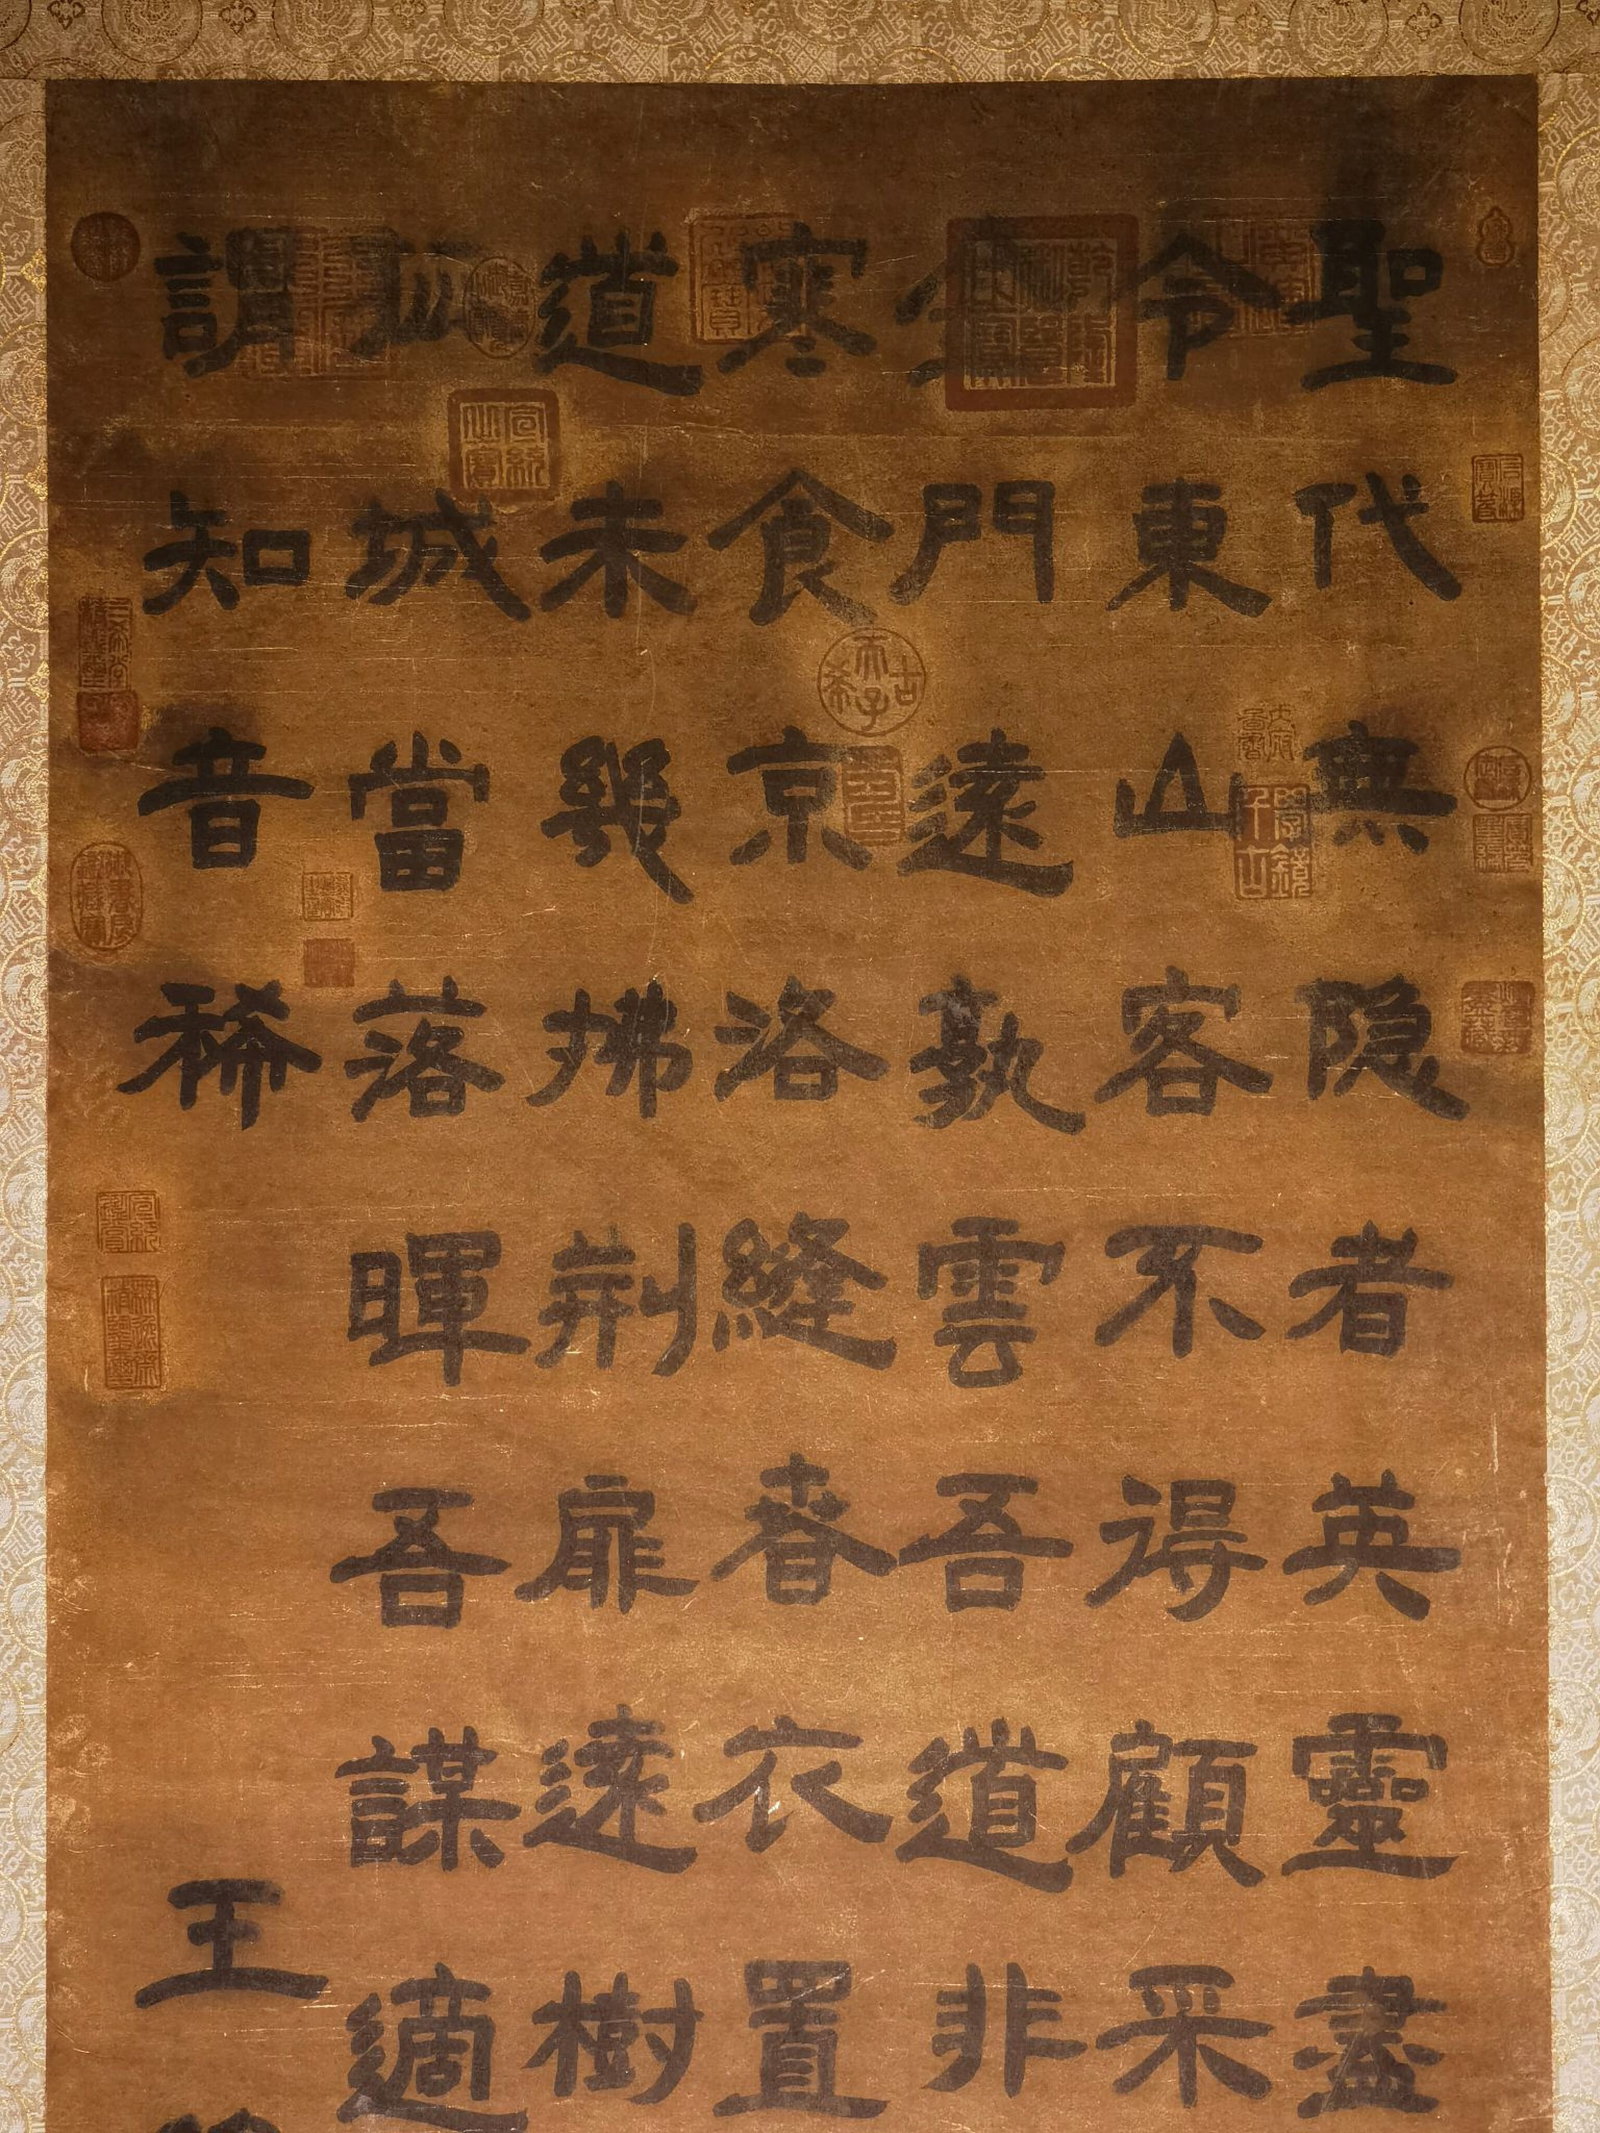 聖代無隐者英靈盡
令東山客不得顧采
金門遠孰雲吾道非
寒食京洛縫春衣置
道未幾拂荊扉遠樹
孤城當落暉吾謀適
謂知音稀
王
古希天子